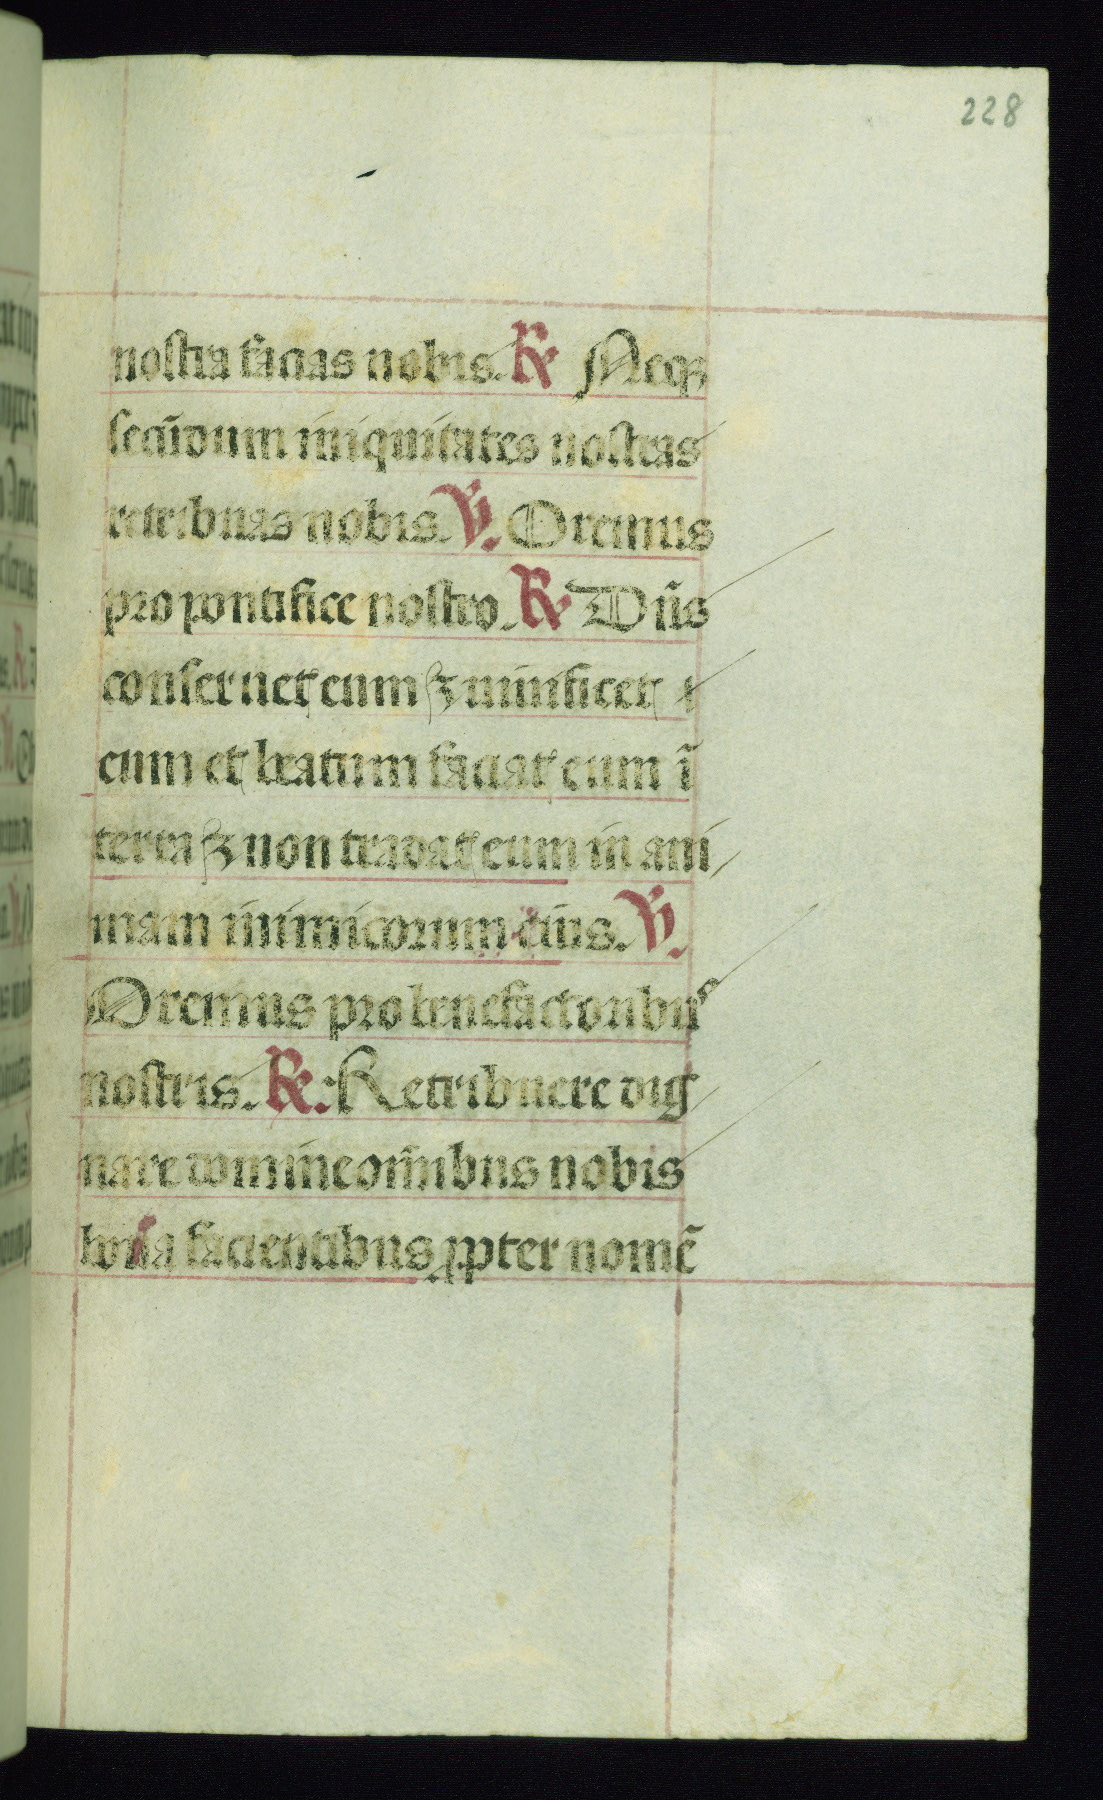 228
nostra facias nobis. ℟ Neq3
secūdum iniquitates nostras
retribuas nobis. ℣. Oremus
pro pontifice nostro. ℟ Dn̄s
conseruet eum ⁊ uiuificet
eum et beatum faciat eum ī
terra ⁊ non tradat eum in ani
mam inimicorum eius. ℣.
Oremus pro benefactoribus
nostris. ℟. Retribuere dig
nare domine om̄ibus nobis
bona facientibus ꝓpter nomē